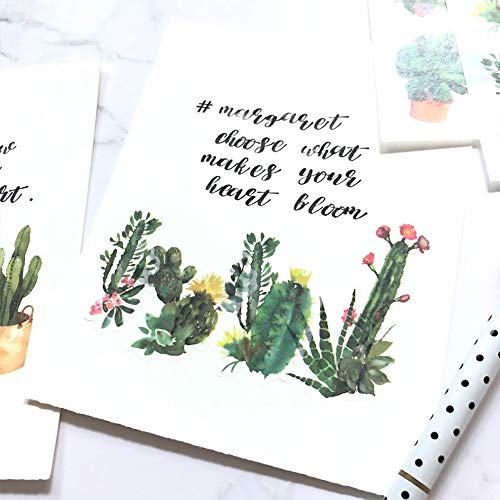 # margaret
choose what
makes your
heart bloom